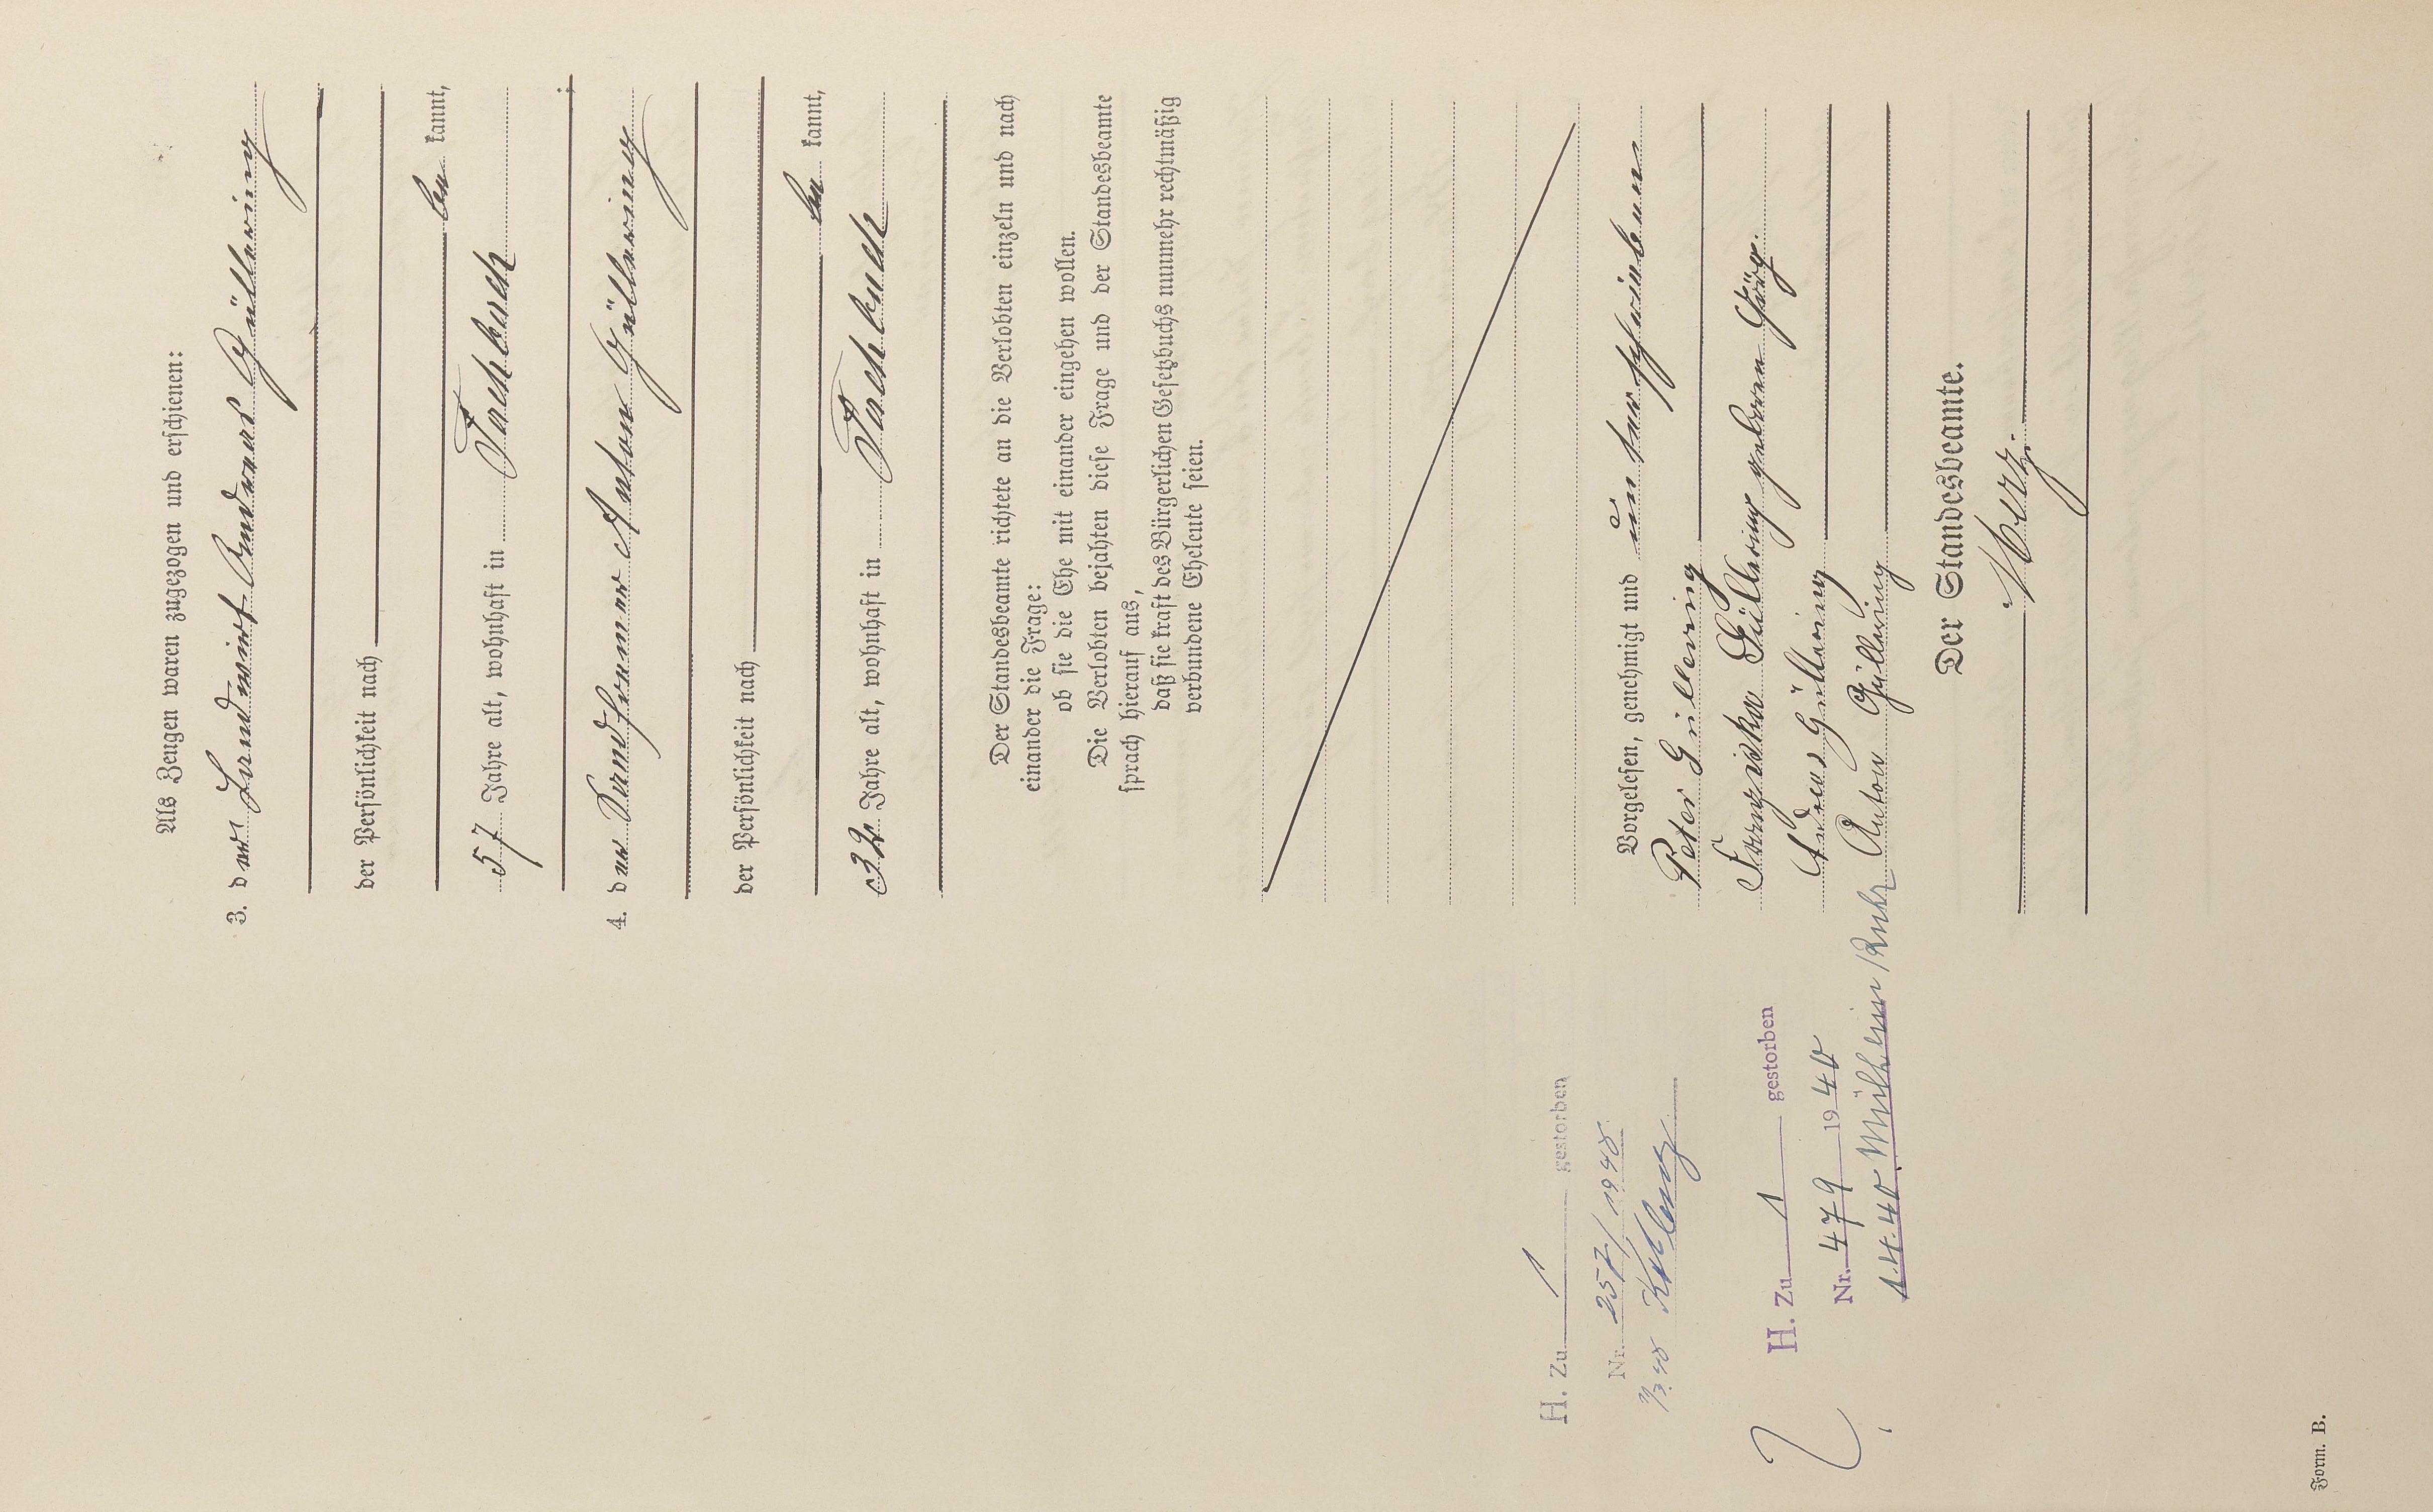 Als Zeugen waren zugezogen und erschienen:
3. der Landwirt Andreas Güllering
der Persönlichkeit nach
be kannt,
57 Jahre alt, wohnhaft in Fachbach
4. der Bandformer Anton Güllering
der Persönlichkeit nach
be kannt,
32 Jahre alt, wohnhaft in Fachbach
Der Standesbeamte richtete an die Verlobten einzeln und nach
einander die Frage:
ob sie die Ehe mit einander eingehen wollen.
Die Verlobten bejahten diese Frage und der Standesbeamte
sprach hierauf aus,
daß sie kraft des Bürgerlichen Gesetzbuchs nunmehr rechtmäßig
verbundene Eheleute seien.
Vorgelesen, genehmigt und unterschrieben
Peter Güllering
Franziska Güllering geboren Görg.
Andreas Güllering
Anton Güllering
Der Standesbeamte.
H. Zu 1 gestorben
Nr. 257/1948
Koblenz
H. Zu 1 gestorben
Nr. 479 1940
1.4.40 Mülheim/Ruhr
Form. B.